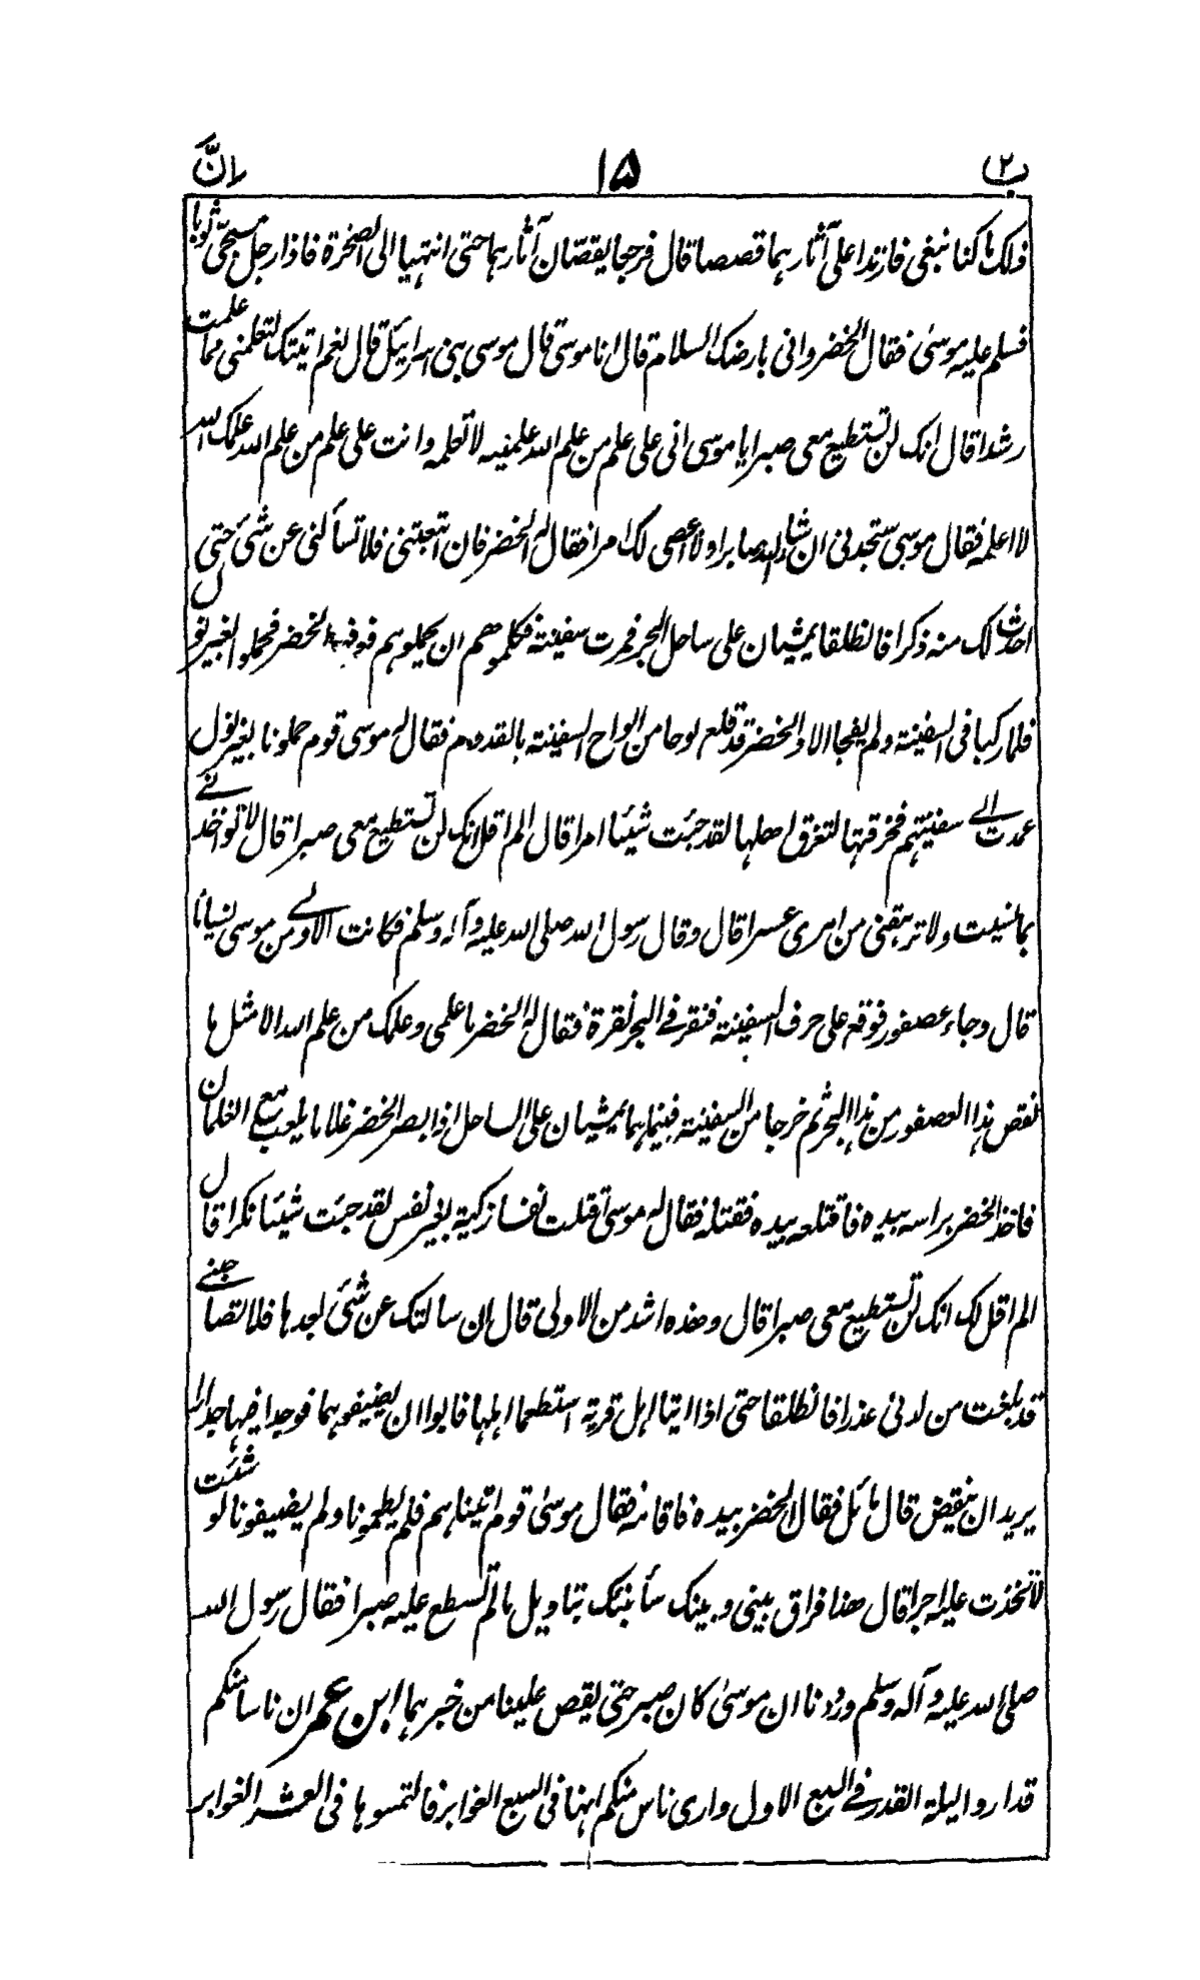 ب٢ ١٥ انّ
ذلک ما کنا نبغی فارتدا علی آثارہما قصصا قال فرجعا یقصان آثارہما حتی انتہیا الی الصخرة فاذا رجل مسجّی ثوبا
فسلم علیہ موسیٰ فقال الخضر وانی بارضک السلام قال انا موسی قال موسی بنی اسرائیل قال نعم اتیتک لتعلمنی مما علمت
رشدا قال انک لن تستطیع معی صبرا یا موسی انی علی علم من علم اللہ علمنیہ لا تعلمہ وانت علی علم من علم اللہ علمک اللہ
لا اعلمہ فقال موسی ستجدنی ان شاء اللہ صابرا ولا اعصی لک امرا فقال لہ الخضر فان اتبعتنی فلا تسألنی عن شئ حتی
احدث لک منہ ذکرا فانطلقا یمشیان علی ساحل البحر فمرت سفینة فکلموهم ان یحملوہم فعرفوا الخضر فحملوا بغیر نول
فلما رکبا فی السفینة ولم یفجا الا والخضر قد قلع لوحا من الواح السفینة بالقدوم فقال لہ موسی قوم حملونا بغیر نول
عمدت الے سفینتہم فخرقتہا لتغرق اهلہا لقد جئت شیئا امرا قال الم اقل انک لن تستطیع معی صبرا قال لا تؤاخذنے
بما نسیت ولا ترہقنی من امری عسرا قال وقال رسول اللہ صلی اللہ علیہ وآلہ وسلم فکانت الاولے من موسی نسیانا
قال وجاء عصفور فوقع علی حرف السفینة فنقر فے البحر نقرة فقال لہ الخضر ما علمی وعلمک من علم اللہ الا مثل ما
نقص ہذا العصفور من ہذا البحر ثم خرجا من السفینة فبینما ہما یمشیان علی الساحل اذ ابصر الخضر غلاما یلعب مع الغلمان
فاخذ الخضر براسہ بیدہ فاقتلعہ بیدہ فقتلہ فقال لہ موسی اقتلت نفسا زکیة بغیر نفس لقد جئت شیئا نکرا قال
الم اقل لک انک لن تستطیع معی صبرا قال وهذہ اشد من الاولی قال ان سالتک عن شئ بعدہا فلا تصاحبنے
قد بلغت من لدنی عذرا فانطلقا حتی اذا اتیا اہل قریة استطعما اہلہا فابوا ان یضیفوہما فوجدا فیہا جدارا
یرید ان ینقض قال مائل فقال الخضر بیدہ فاقامہ فقال موسیٰ قوم اتیناہم فلم یطعمونا ولم یضیفونا لو شئت
لاتخذت علیہ اجرا قال هذا فراق بینی وبینک سأنبئک بتاویل ما لم تسطع علیہ صبرا فقال رسول اللہ
صلی اللہ علیہ وآلہ وسلم وددنا ان موسیٰ کان صبر حتی یقص علینا من خبرہما ابن عمر ان ناسا منکم
قد اروا لیلة القدر فے السبع الاول واری ناس منکم انہا فی السبع الغوابر فالتمسوہا فی العشر الغوابر